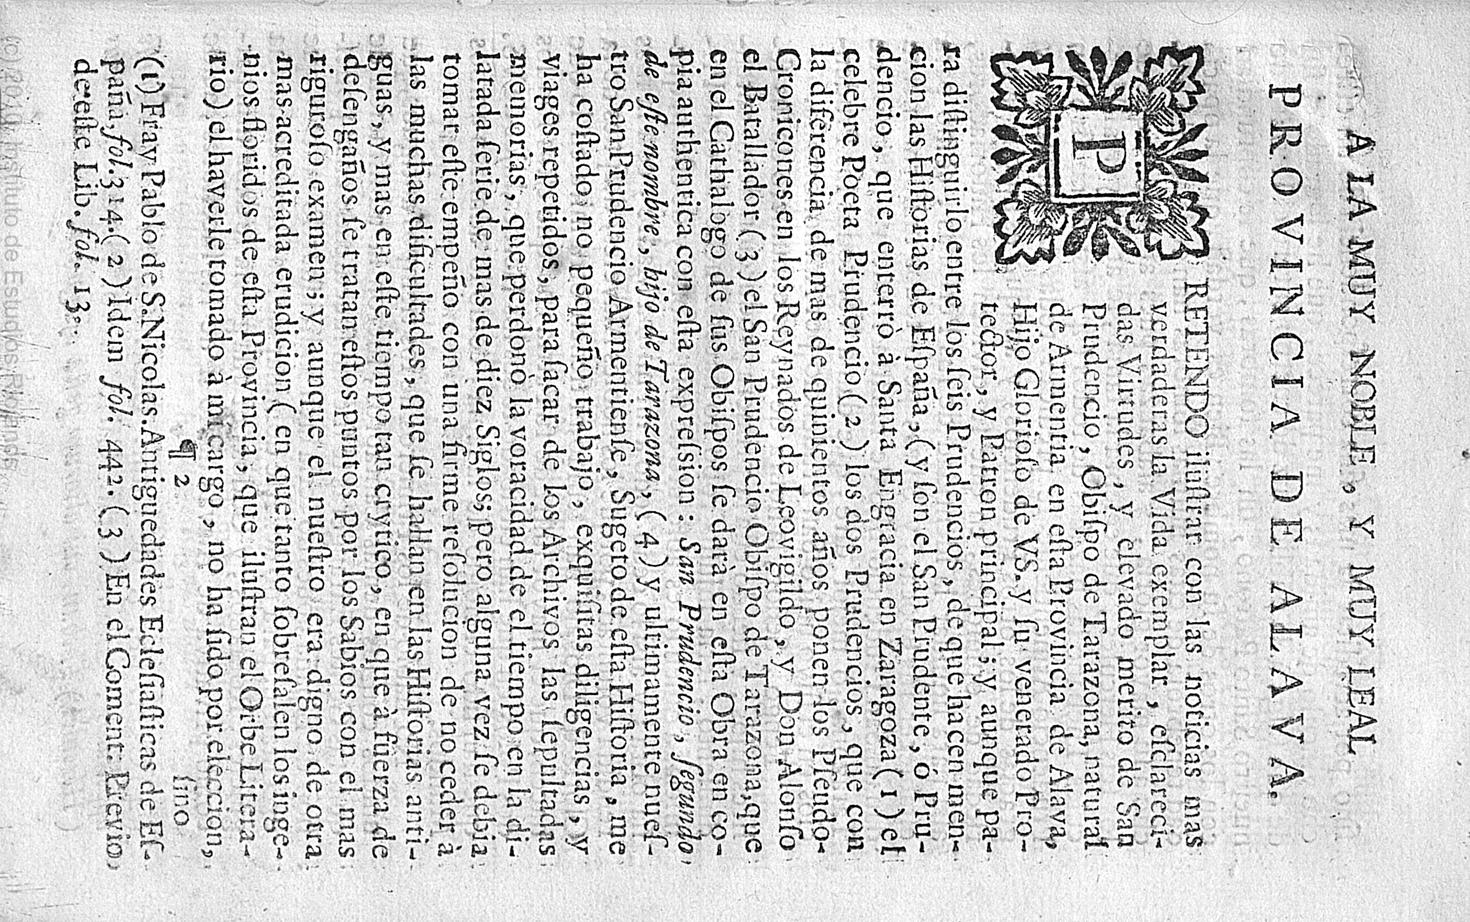 A LA MUY NOBLE, Y MUY LEAL
PROVINCIA DE ALAVA.
PRETENDO iluſtrar con las noticias mas
verdaderas la Vida exemplar, eſclareci-
das Virtudes, y elevado merito de San
Prudencio, Obiſpo de Tarazona, natural
de Armentia en eſta Provincia de Alava,
Hijo Glorioſo de VS. y ſu venerado Pro-
tector, y Patron principal; y aunque pa-
ra diſtinguirlo entre los ſeis Prudencios, de que hacen men-
cion las Hiſtorias de Eſpaña, (y ſon el San Prudente, ó Pru-
dencio, que enterrò à Santa Engracia en Zaragoza (1) el
celebre Poeta Prudencio (2) los dos Prudencios, que con
la diferencia de mas de quinientos años ponen los Pſeudo-
Cronicones en los Reynados de Leovigildo, y Don Alonſo
el Batallador (3) el San Prudencio Obiſpo de Tarazona, que
en el Cathalogo de ſus Obiſpos ſe darà en eſta Obra en co-
pia authentica con eſta expreſsion: San Prudencio, ſegundo
de eſte nombre, hijo de Tarazona, (4) y ultimamente nueſ-
tro San Prudencio Armentienſe, Sugeto de eſta Hiſtoria, me
ha coſtado no pequeño trabajo, exquiſitas diligencias, y
viages repetidos, para ſacar de los Archivos las ſepultadas
memorias, que perdonò la voracidad de el tiempo en la di-
latada ſerie de mas de diez Siglos; pero alguna vez ſe debia
tomar eſte empeño con una firme reſolucion de no ceder à
las muchas dificultades, que ſe hallan en las Hiſtorias anti-
guas, y mas en eſte tiempo tan crytico, en que à fuerza de
deſengaños ſe tratan eſtos puntos por los Sabios con el mas
riguroſo examen; y aunque el nueſtro era digno de otra
mas acreditada erudicion (en que tanto ſobreſalen los inge-
nios floridos de eſta Provincia, que iluſtran el Orbe Litera-
rio) el haverle tomado à mi cargo, no ha ſido por eleccion,
¶ 2 ſino
(1) Fray Pablo de S. Nicolas. Antiguedades Ecleſiaſticas de Eſ-
paña, fol. 314. (2) Idem fol. 442. (3) En el Coment. Previo
de eſte Lib. fol. 13.